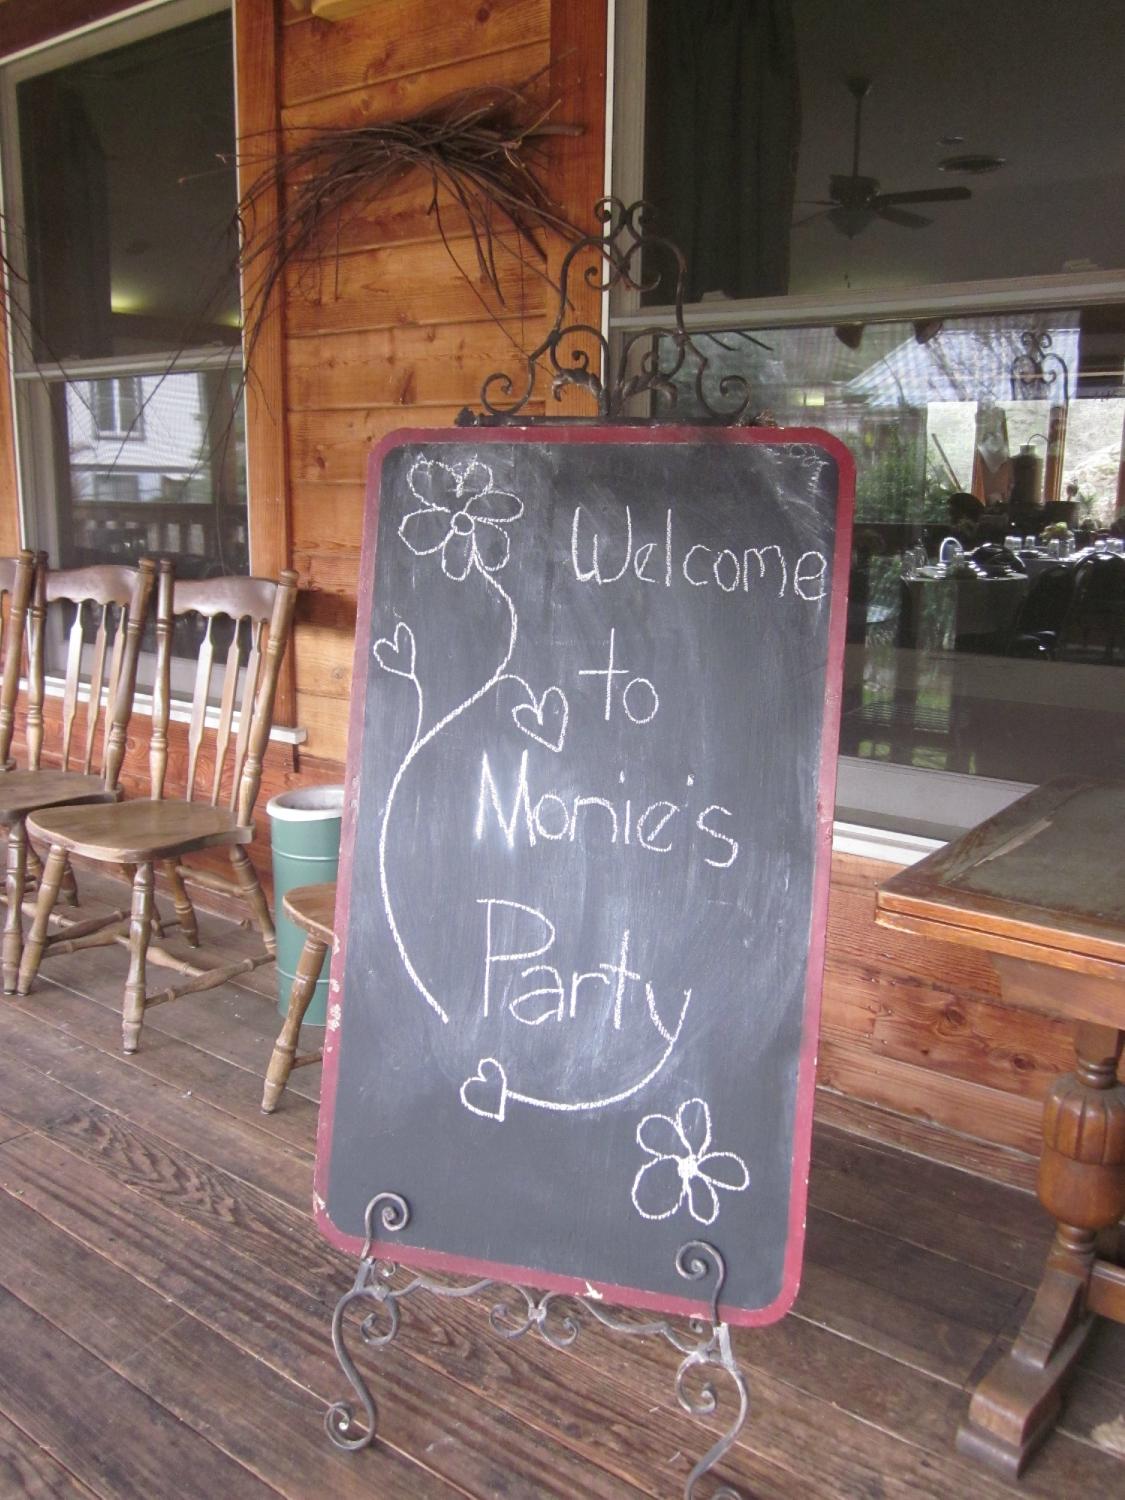 Welcome
to
Monie's
Party